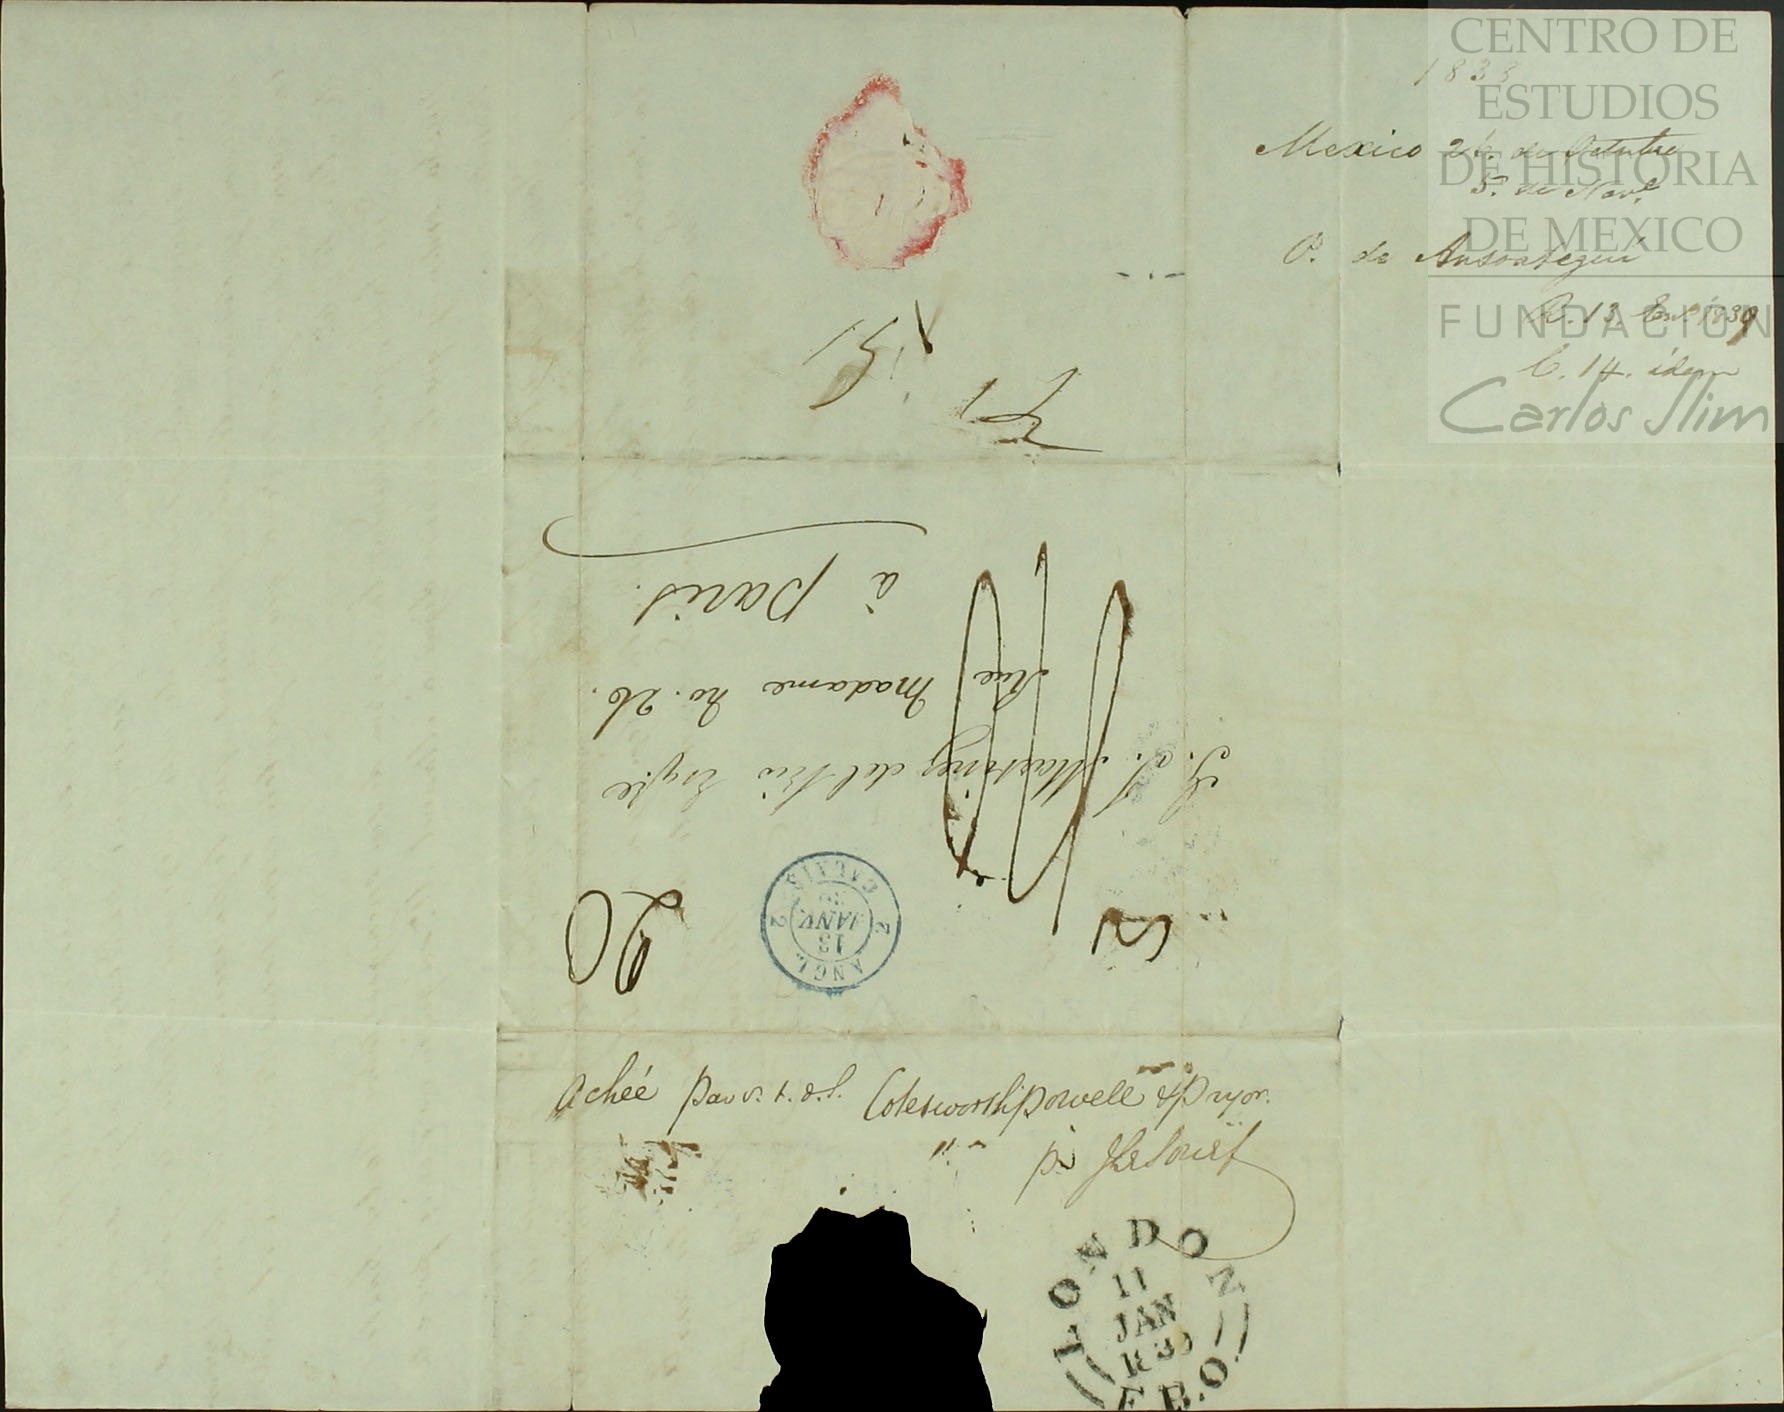 CENTRO DE
ESTUDIOS
DE HISTORIA
DE MEXICO
FUNDACIÓN
Carlos Slim
1838
Mexico 26. de Octubre
5. de Nov.e
P. de Ansoategui
R. 13. En.o 1839
C. 14. idem
à Paris.
Rue Madame No. 26.
J. J. Martinez del Rio Esq.re
20
ANGL.
2 13 2
JANV.
39
CALAIS
Achéé par v. t. d. S. Cotesworth Powell & Pryor.
pr JLeSouef
LONDON
11
JAN
1839
F.P.O.